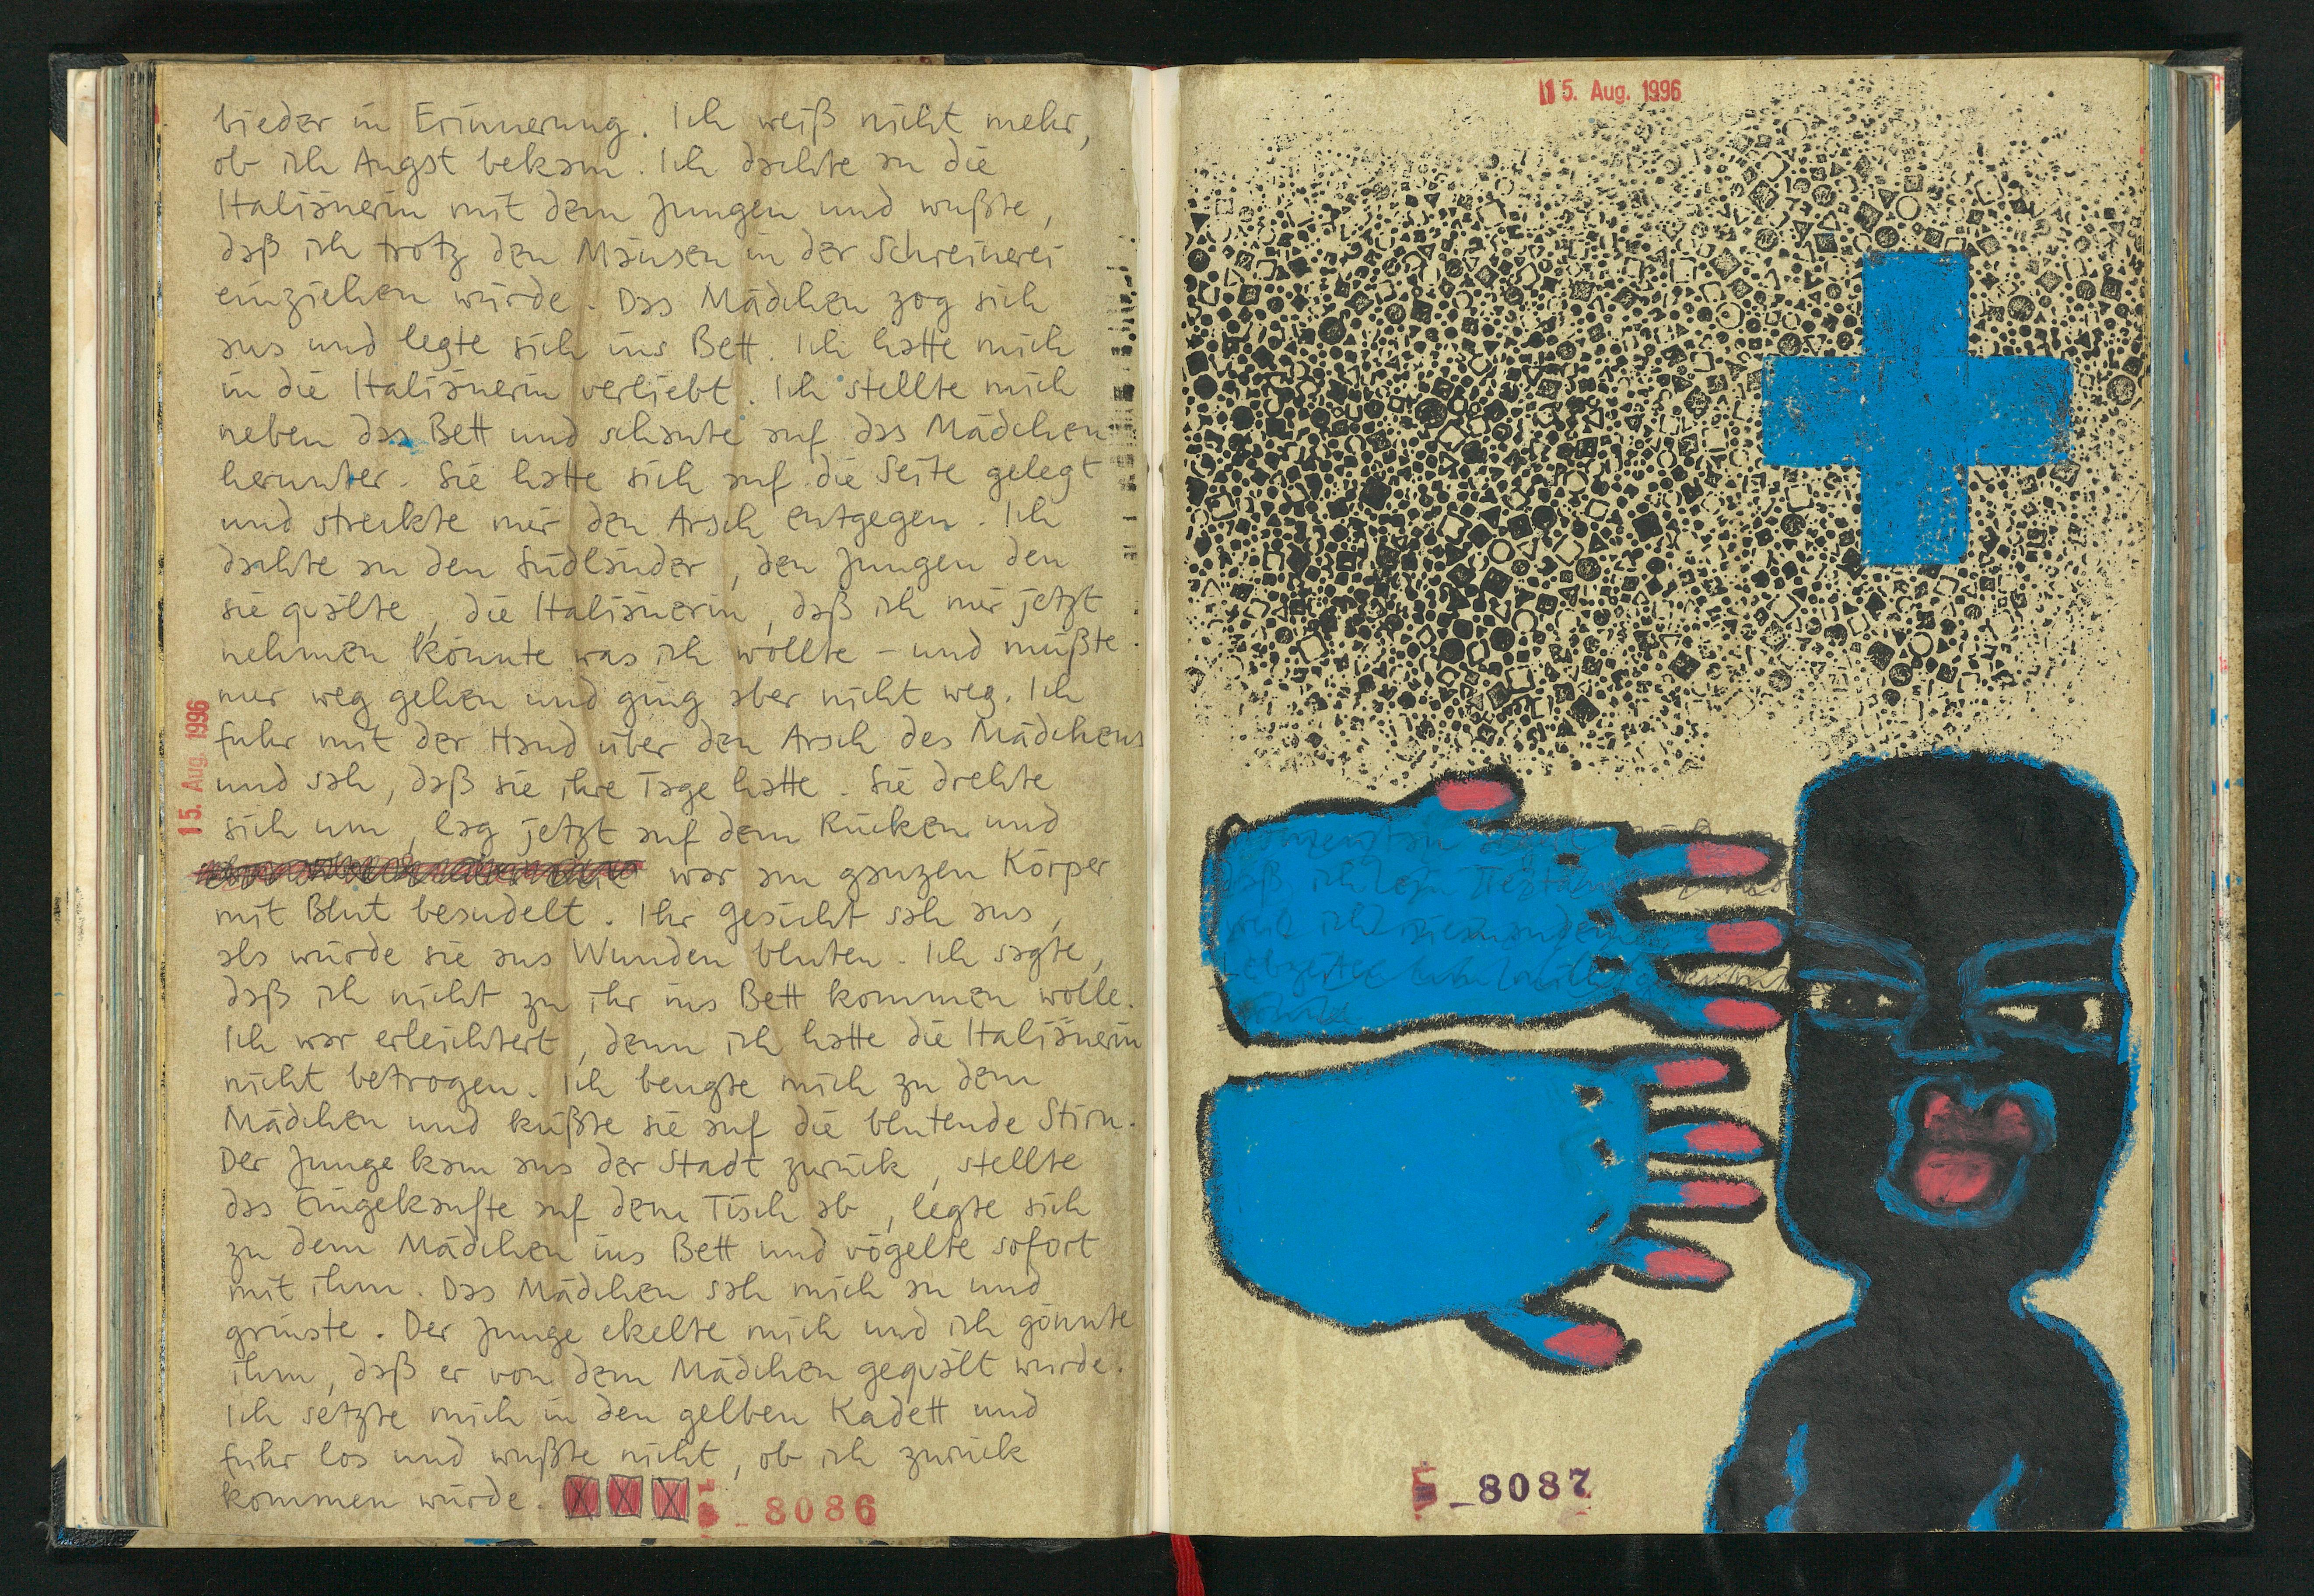 bieder in Erinnerung. Ich weiß nicht mehr,
ob ich Angst bekam. Ich dachte an die
Italiänerin mit dem Jungen und wußte,
daß ich trotz den Mäusen in der Schreinerei
einziehen würde. Das Mädchen zog sich
aus und legte sich ins Bett. Ich hatte mich
in die Italiänerin verliebt. Ich stellte mich
neben das Bett und schaute auf das Mädchen
herunter. Sie hatte sich auf die Seite gelegt
und streckte mir den Arsch entgegen. Ich
dachte an den Südländer, den Jungen den
sie quälte, die Italiänerin, daß ich mir jetzt
nehmen könnte was ich wollte – und müßte
nur weg gehen und ging aber nicht weg. Ich
fuhr mit der Hand über den Arsch des Mädchens
und sah, daß sie ihre Tage hatte. Sie drehte
sich um, lag jetzt auf dem Rücken und
war am ganzen Körper
mit Blut besudelt. Ihr Gesicht sah aus,
als würde sie aus Wunden bluten. Ich sagte,
daß ich nicht zu ihr ins Bett kommen wolle.
Ich war erleichtert, denn ich hatte die Italiänerin
nicht betrogen. Ich beugte mich zu dem
Mädchen und küßte sie auf die blutende Stirn.
Der Junge kam aus der Stadt zurück, stellte
das Eingekaufte auf dem Tisch ab, legte sich
zu dem Mädchen ins Bett und vögelte sofort
mit ihm. Das Mädchen sah mich an und
grinste. Der Junge ekelte mich und ich gönnte
ihm, daß er von dem Mädchen gequält wurde.
Ich setzte mich in den gelben Kadett und
fuhr los und wußte nicht, ob ich zurück
kommen würde.
_8086
15. Aug. 1996
15. Aug. 1996
daß ich
weil ich
_8087